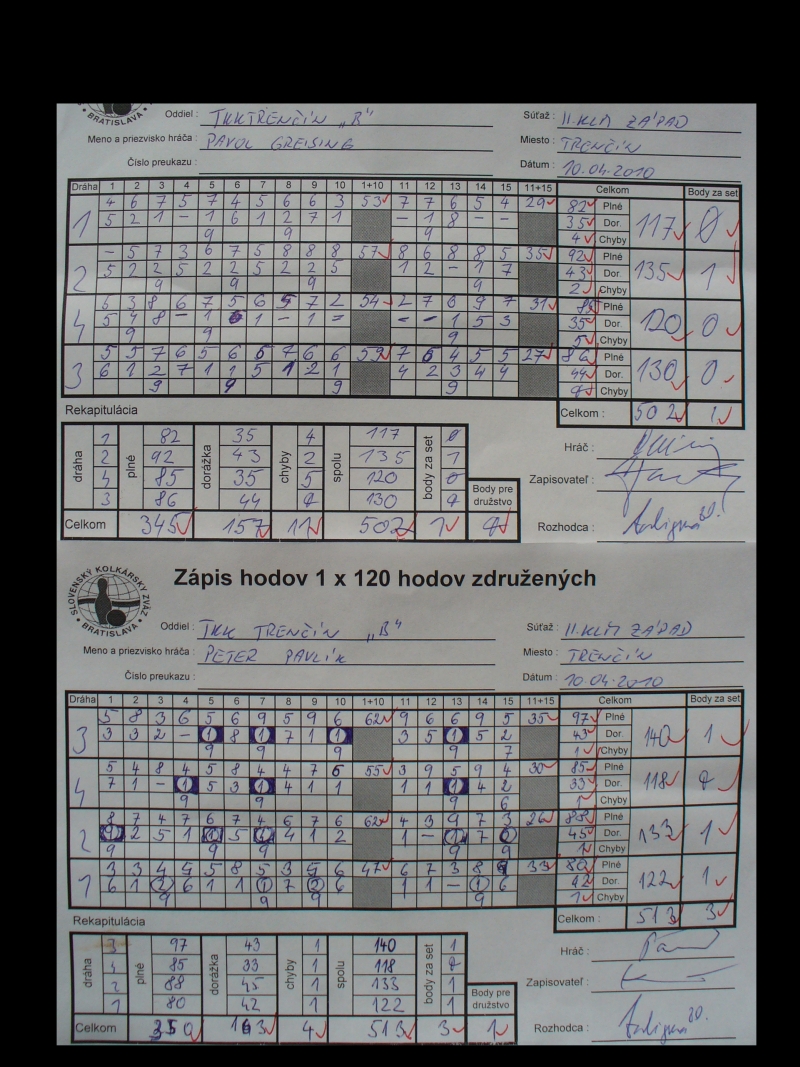 BRATISLAVA
Oddiel : TKK TRENČÍN „B"
Súťaž : II.KLM ZÁPAD
Meno a priezvisko hráča : PAVOL GREISING
Miesto : TRENČÍN
Číslo preukazu :
Dátum : 10.04.2010
Dráha 1 2 3 4 5 6 7 8 9 10 1+10 11 12 13 14 15 11+15 Celkom Body za set
1 4 6 7 5 7 4 5 6 6 3 53 7 7 6 5 4 29 82 Plné 117 0
5 2 1 - 1 6 1 2 7 1 - 1 8 - - 35 Dor.
9 9 9 4 Chyby
2 - 5 7 3 6 7 5 8 8 8 57 8 6 8 8 5 35 92 Plné 135 1
5 2 2 5 2 2 5 2 2 5 1 2 - 1 7 43 Dor.
9 9 9 9 2 Chyby
4 54 2 7 6 9 7 31 85 Plné 120 0
35 Dor.
9 9 9 5 Chyby
3 5 5 7 6 5 6 6 7 6 6 59 7 6 4 5 5 27 86 Plné 130 0
6 1 2 7 1 1 5 1 2 1 4 2 3 4 4 44 Dor.
9 9 9 9 Chyby
Celkom : 502 1
Rekapitulácia
dráha plné dorážka chyby spolu body za set
1 82 35 4 117 0
2 92 43 2 135 1
4 85 35 5 120 0
3 86 44 0 130 0
Body pre družstvo
Celkom 345 157 11 502 1 0
Hráč :
Zapisovateľ :
Rozhodca :
SLOVENSKÝ KOLKÁRSKY ZVÄZ
BRATISLAVA
Zápis hodov 1 x 120 hodov združených
Oddiel : TKK TRENČÍN „B"
Súťaž : II.KLM ZÁPAD
Meno a priezvisko hráča : PETER PAVLÍK
Miesto : TRENČÍN
Číslo preukazu :
Dátum : 10.04.2010
Dráha 1 2 3 4 5 6 7 8 9 10 1+10 11 12 13 14 15 11+15 Celkom Body za set
3 5 8 3 6 5 6 9 5 9 6 62 9 6 6 9 5 35 97 Plné 140 1
3 3 2 - 1 8 1 7 1 1 3 5 1 5 2 43 Dor.
9 9 9 9 7 1 Chyby
4 5 4 8 4 5 8 4 4 7 6 55 3 9 5 9 4 30 85 Plné 118 0
7 1 - 1 1 3 1 4 1 1 1 1 1 4 2 33 Dor.
9 9 9 6 1 Chyby
2 8 7 4 7 6 7 4 6 7 6 62 4 3 9 7 3 26 88 Plné 133 1
2 5 1 5 4 1 2 1 - 1 7 45 Dor.
9 9 9 9 1 Chyby
1 3 3 4 5 5 8 5 3 5 6 47 6 7 3 8 9 33 80 Plné 122 1
6 1 2 6 1 1 1 7 2 6 1 1 - 1 6 42 Dor.
9 9 9 9 1 Chyby
Celkom : 513 3
Rekapitulácia
dráha plné dorážka chyby spolu body za set
3 97 43 1 140 1
4 85 33 1 118 0
2 88 45 1 133 1
1 80 42 1 122 1
Body pre družstvo
Celkom 350 163 4 513 3 1
Hráč :
Zapisovateľ :
Rozhodca :